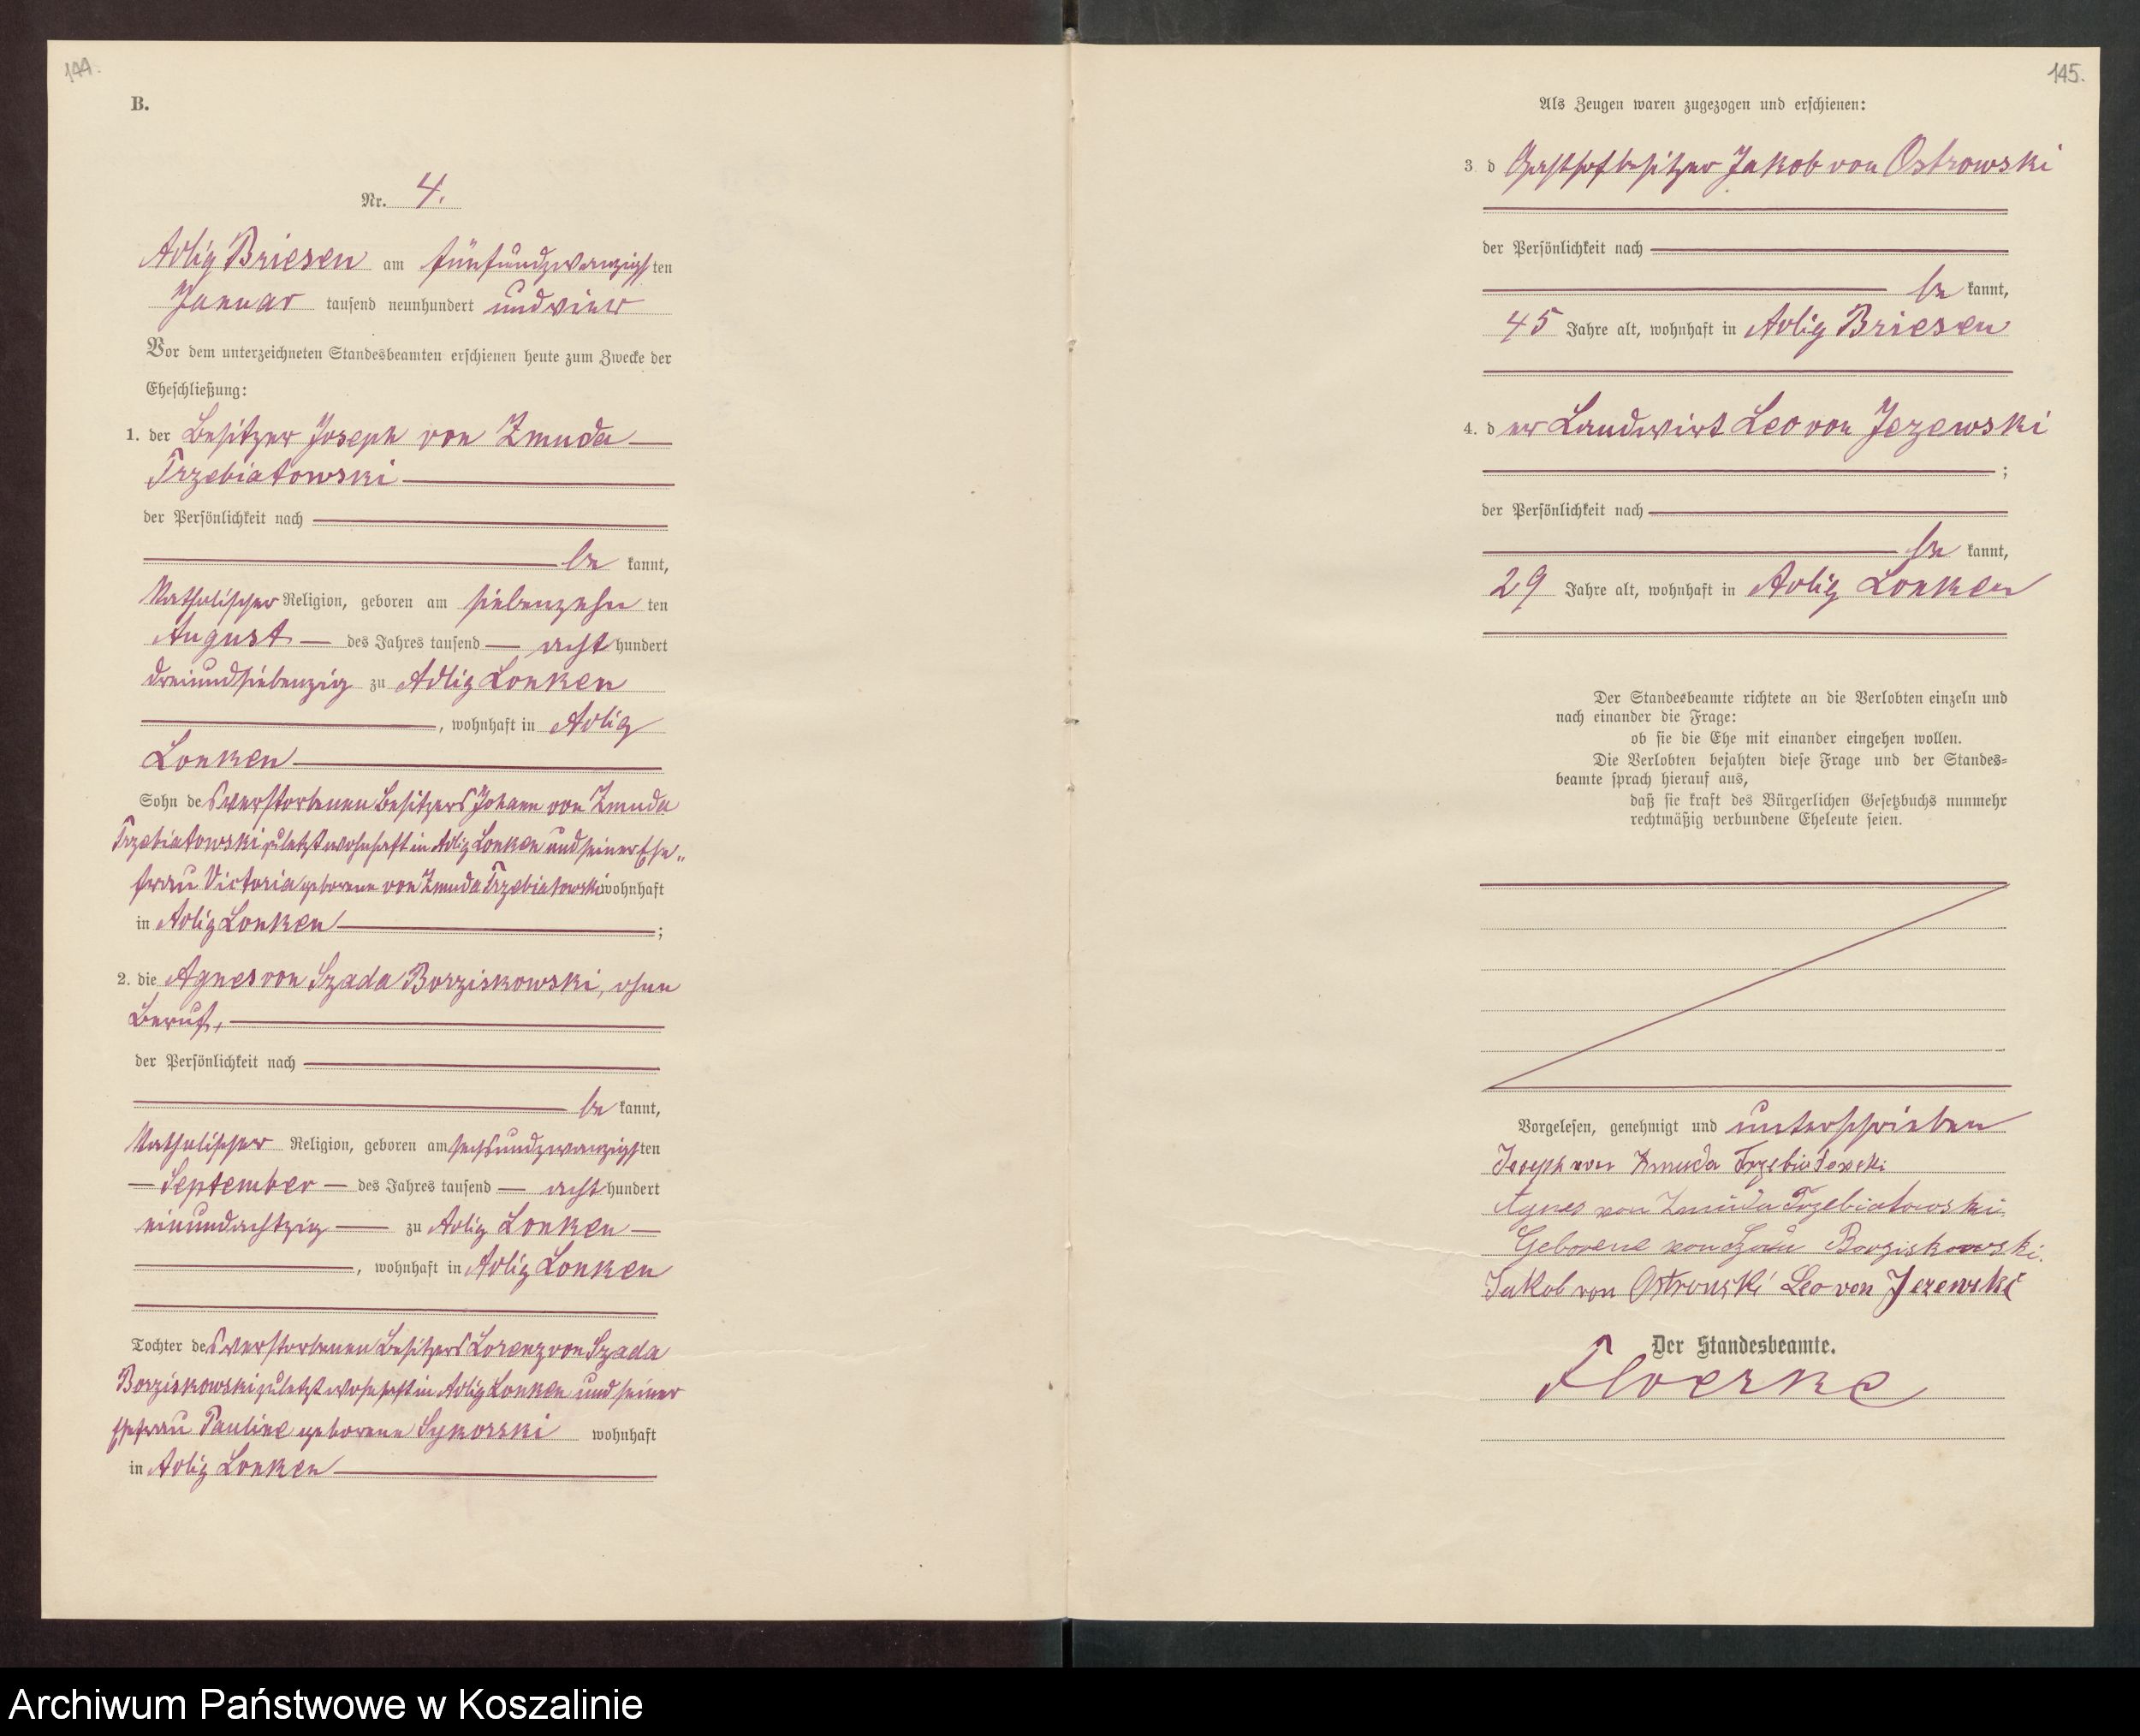 144.
B.
Nr. 4.
Adlig Briesen am fünfundzwanzigsten
Januar tausend neunhundert und vier
Vor dem unterzeichneten Standesbeamten erschienen heute zum Zwecke der
Eheschließung:
1. der Besitzer Joseph von Zmuda
Trzebiatowski
der Persönlichkeit nach
be kannt,
katholischer Religion, geboren am siebenzehn ten
August des Jahres tausend acht hundert
dreiundsiebenzig zu Adlig Lonken
, wohnhaft in Adlig
Lonken
Sohn des verstorbenen Besitzers Johann von Zmuda
Trzebiatowski zuletzt wohnhaft in Adlig Lonken und seiner Ehe„
frau Victoria geborene von Zmuda Trzebiatowski wohnhaft
in Adlig Lonken ;
2. die Agnes von Szada Borziskowski, ohne
Beruf,
der Persönlichkeit nach
be kannt,
katholischer Religion, geboren am sechsundzwanzigsten
September des Jahres tausend acht hundert
einundachtzig zu Adlig Lonken
, wohnhaft in Adlig Lonken
Tochter des verstorbenen Besitzers Lorenz von Szada
Borziskowski zuletzt wohnhaft in Adlig Lonken und seiner
Ehefrau Pauline geborene Sykorski wohnhaft
in Adlig Lonken
145.
Als Zeugen waren zugezogen und erschienen:
3. d Gasthofbesitzer Jakob von Ostrowski
der Persönlichkeit nach
be kannt,
45 Jahre alt, wohnhaft in Adlig Briesen
4. d er Landwirt Leo von Jezewski
;
der Persönlichkeit nach
be kannt,
29 Jahre alt, wohnhaft in Adlig Lonken
Der Standesbeamte richtete an die Verlobten einzeln und
nach einander die Frage:
ob sie die Ehe mit einander eingehen wollen.
Die Verlobten bejahten diese Frage und der Standes-
beamte sprach hierauf aus,
daß sie kraft des Bürgerlichen Gesetzbuchs nunmehr
rechtmäßig verbundene Eheleute seien.
Vorgelesen, genehmigt und unterschrieben
Joseph von Zmuda Trzebiatowski
Agnes von Zmuda Trzebiatowski
Geborene von Szada Borziskowski.
Jakob von Ostrowski Leo von Jezewski
Der Standesbeamte.
Floerke
Archiwum Państwowe w Koszalinie